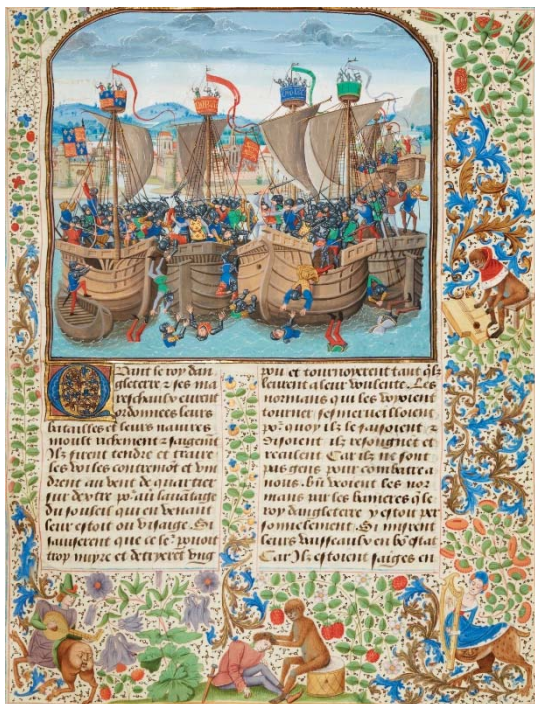 Quant le roy dan
gleterre & ses ma
reschaulx eurent
ordonnees leurs
batailles et leurs navires
moult richement & sagement
Ilz firent tendre et traire
les voiles contremont et vin
drent au vent de quartier
sur dextre po avoir lavantage
du souleil qui en venant
leur estoit ou visaige. Si
saviserent que ce le pouoit
trop nuyre et detryerent ung
pou et tournoyerent tant qlz
leurent a leur voulente Les
normans qui les veoyent
tourner sesmerveilloient
po quoy ilz le faisoient
disoient ilz resongnent et
reculent Car ilz ne sont
pas gens pour combatre a
nous. bn veoient les nor
mans par les banieres q le
roy dangleterre y estoit per
sonnelement Si mirent
leurs vaisseaulx en bo estat
Car Ilz estoient saiges en